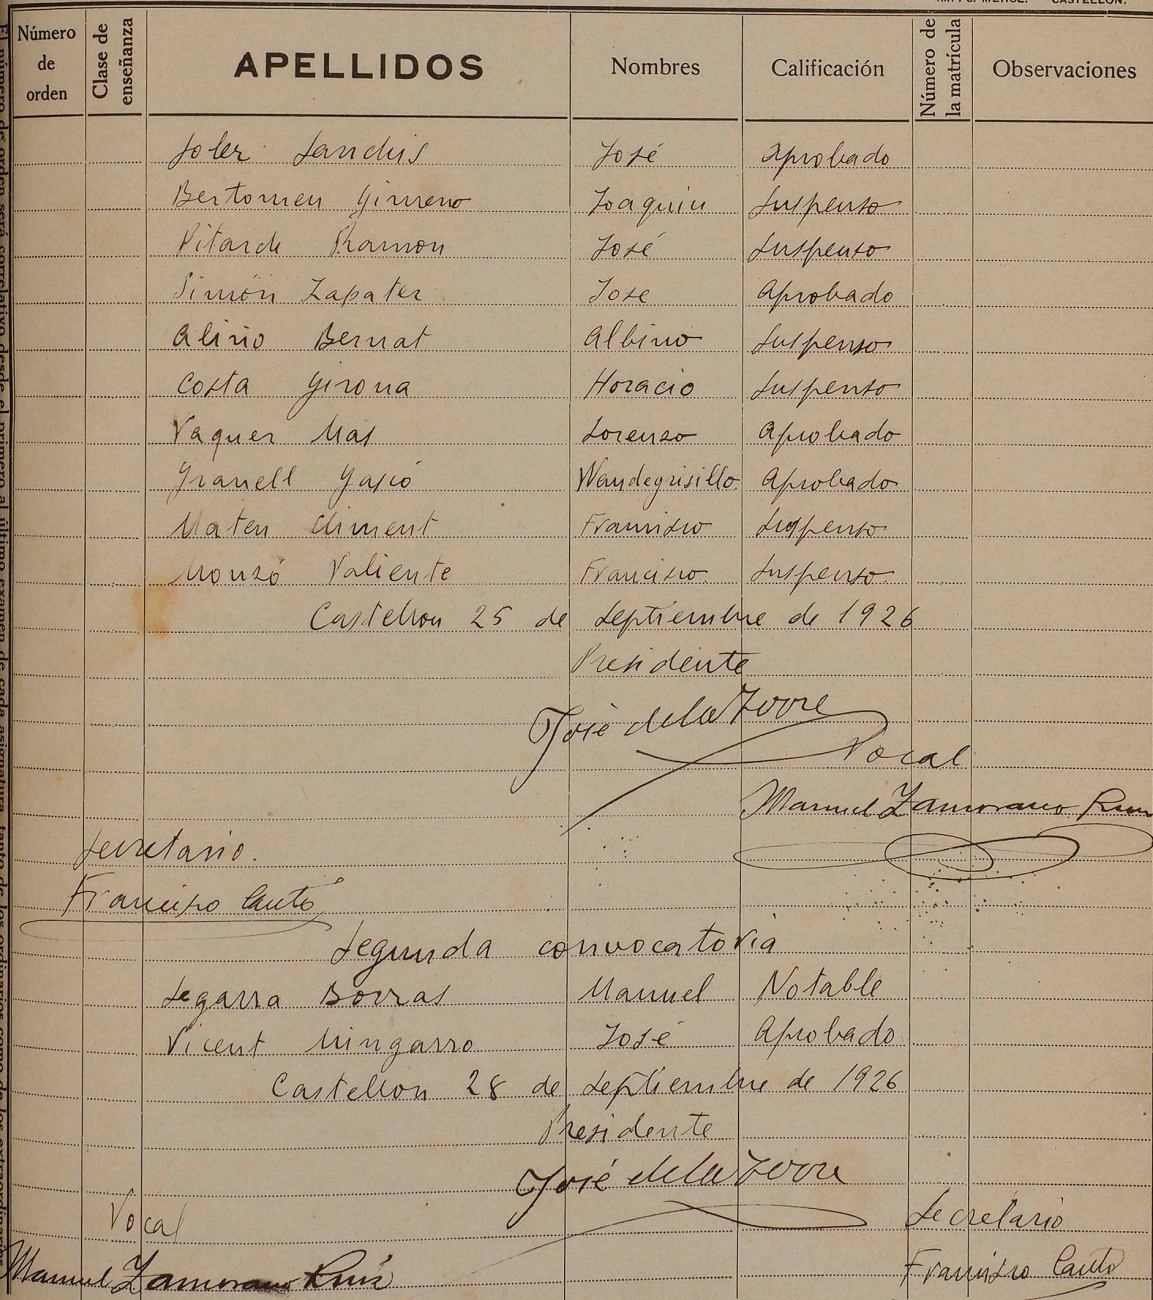 IMP. J. CASTELLÓN.
Número de orden Clase de enseñanza APELLIDOS Nombres Calificación Número de la matrícula Observaciones
Soler Sanchis José Aprobado
Bertomeu Gimeno Joaquin Suspenso
Pitarch Ramon José Suspenso
Simón Zapater Jose Aprobado
Aliño Bernat Albino Suspenso
Costa Girona Horacio Suspenso
Vaquer Mas Lorenzo Aprobado
Granell Gascó Wandegrisillo Aprobado
Mateu Climent Francisco Suspenso
Monzó Valiente Francisco. Suspenso.
Castellon 25 de Septiembre de 1926
Presidente
José de la Torre
Vocal
Manuel Zamorano Ruiz
Secretario.
Francisco Cantó
Segunda convocatoria
Segarra Borras Manuel Notable
Vicent Mingarro José Aprobado
Castellon 28 de Septiembre de 1926
Presidente
José de la Torre
Vocal
Secretario
Manuel Zamorano Ruiz
Francisco Cantó
El número de orden será correlativo desde el primero al último examen de cada asignatura, tanto de los ordinarios como de los extraordinarios